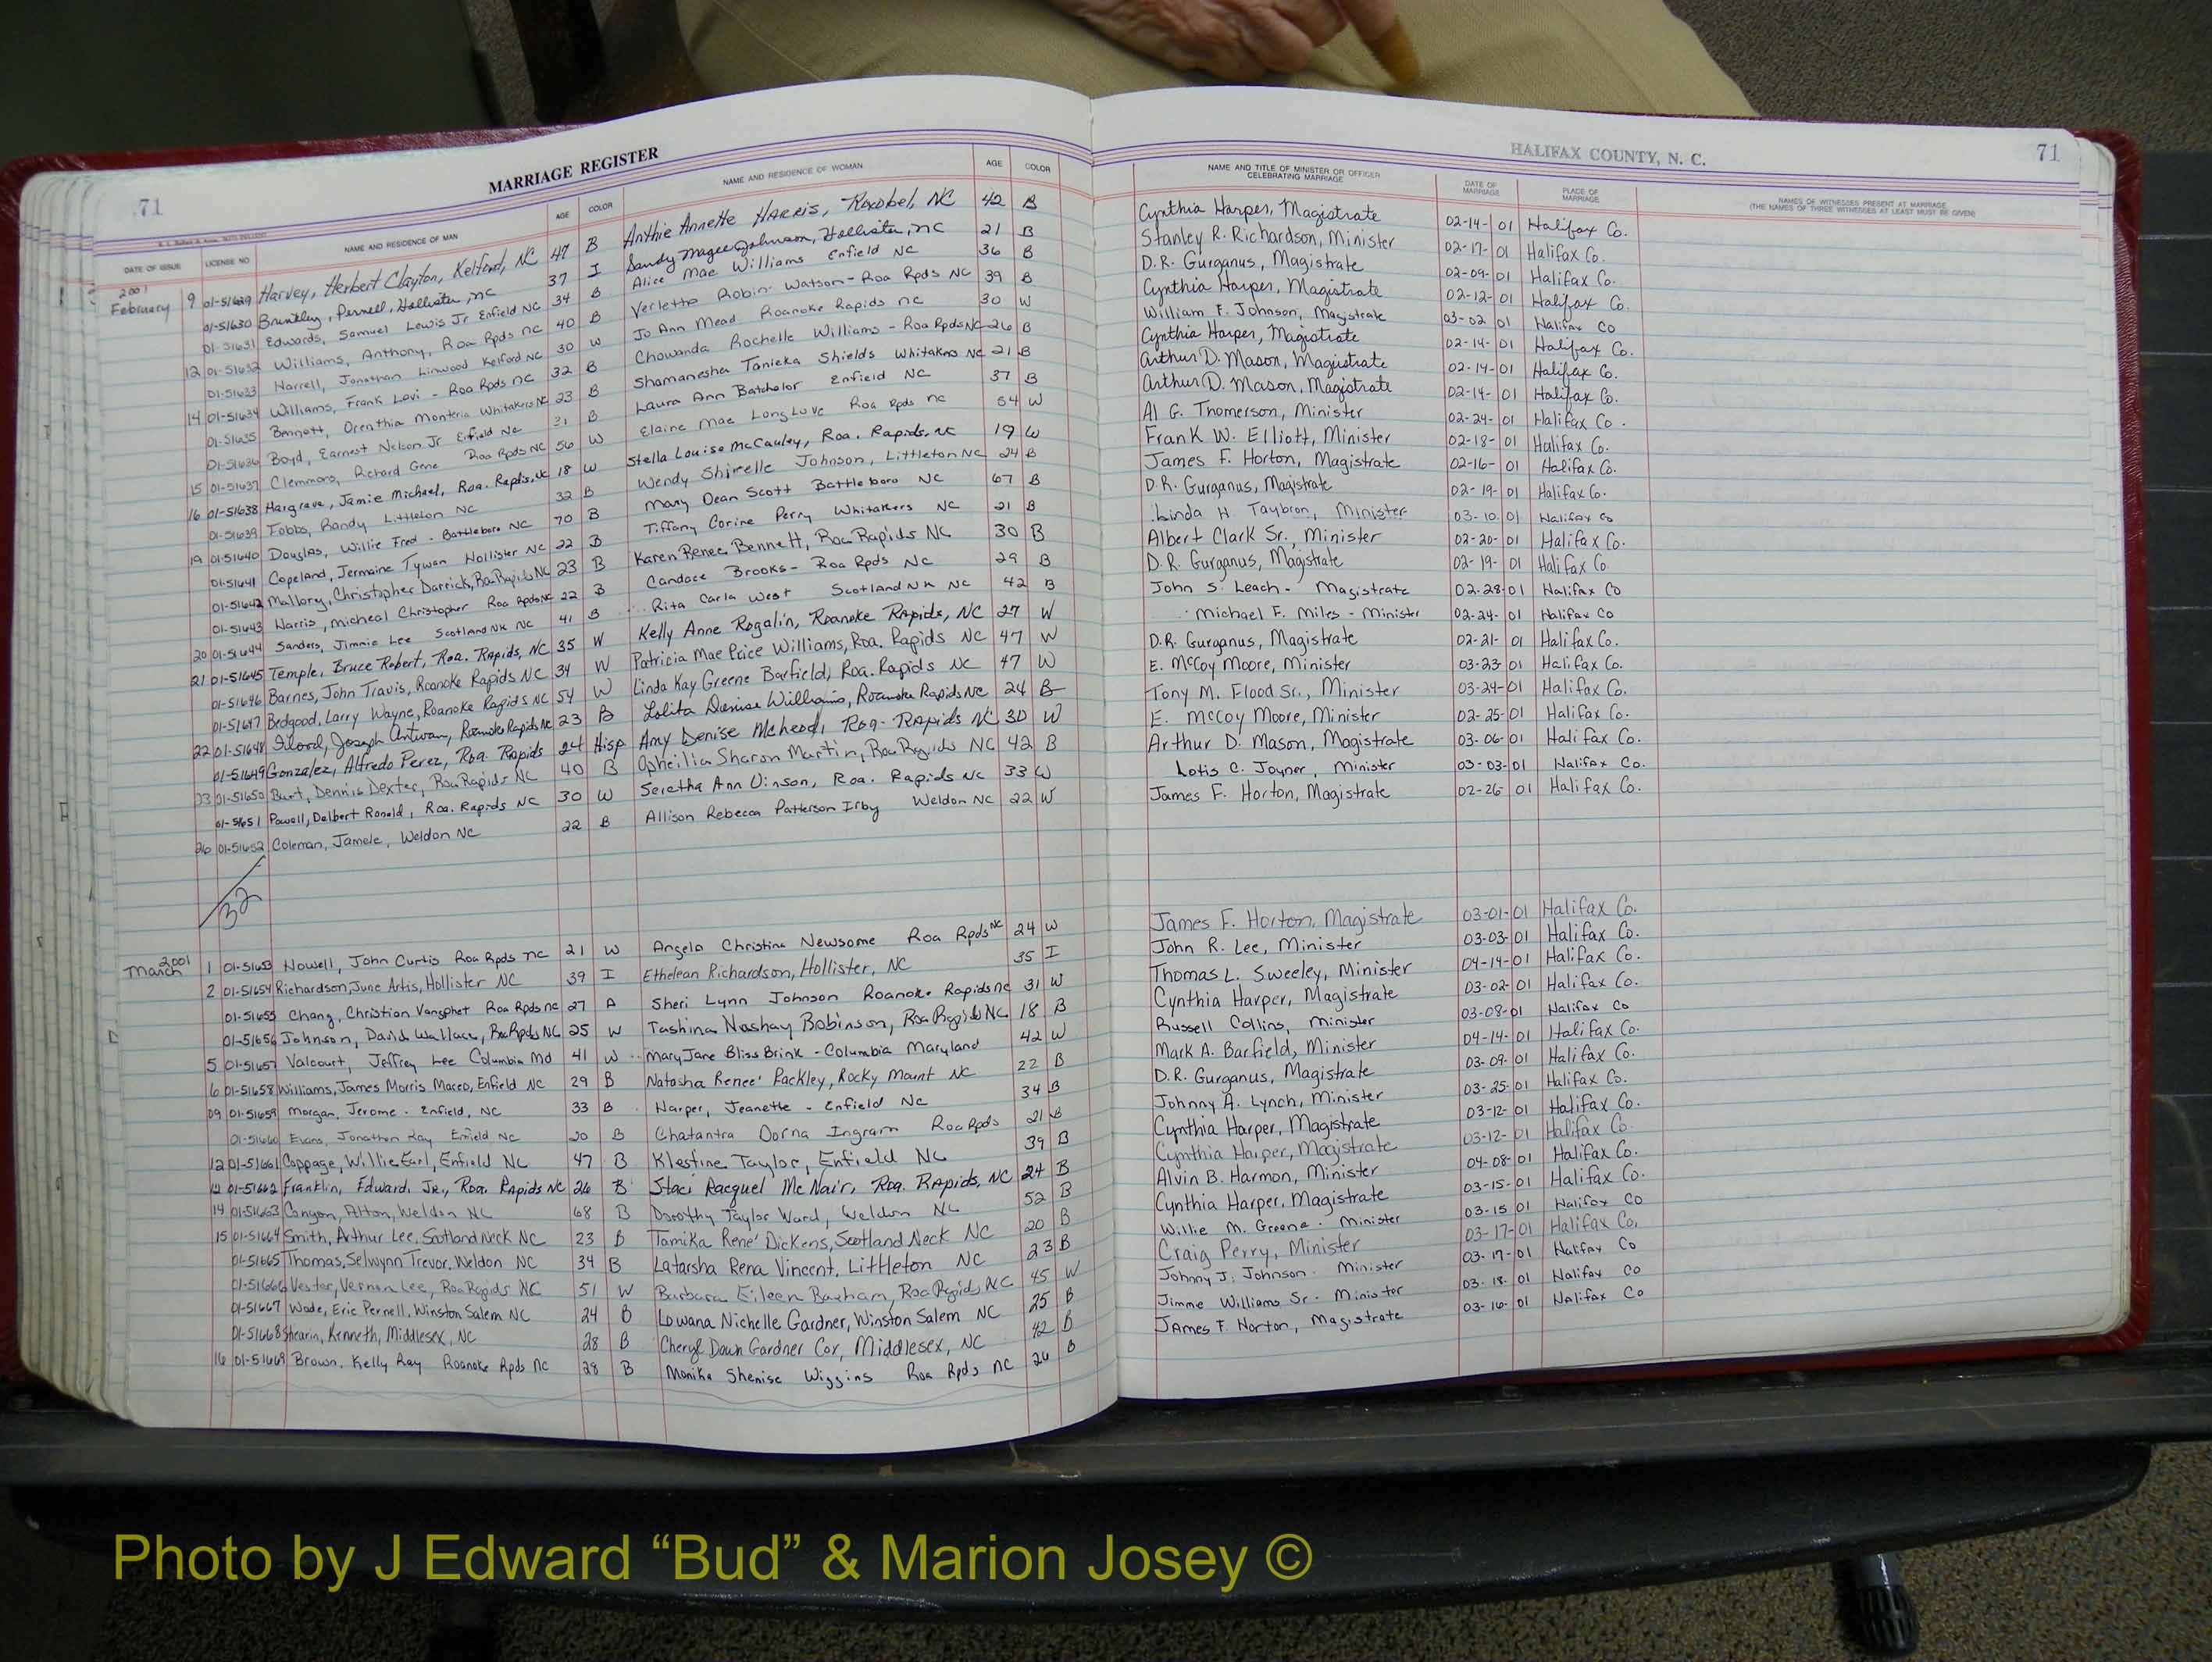 71 MARRIAGE REGISTER
DATE OF ISSUE LICENSE NO NAME AND RESIDENCE OF MAN AGE COLOR NAME AND RESIDENCE OF WOMAN AGE COLOR
2001
February 9 01-51629 Harvey, Herbert Clayton, Kelford, NC 47 B Anthie Annette HARRIS, Roxobel, NC 42 B
01-51630 Brantley, Pernell, Hollister, nc 37 I Sandy Magee Johnson, Hollister, nc 21 B
01-51631 Edwards, Samuel Lewis Jr Enfield NC 34 B Alice Mae Williams Enfield NC 36 B
12 01-51632 Williams, Anthony, Roa Rpds nc 40 B Verlette Robin Watson - Roa Rpds NC 39 B
01-51633 Harrell, Jonathan Linwood Kelford NC 30 W Jo Ann Mead Roanoke Rapids nc 30 W
14 01-51634 Williams, Frank Levi - Roa Rpds nc 32 B Chowanda Rochelle Williams - Roa Rpds NC 26 B
01-51635 Bennett, Orenthia Monteria Whitakers NC 23 B Shamanesha Tanieka Shields Whitakers NC 21 B
01-51636 Boyd, Earnest Nelson Jr Enfield NC 31 B Laura Ann Batchelor Enfield NC 37 B
15 01-51637 Clemmons, Richard Gene Roa Rpds NC 56 W Elaine Mae Longlove Roa Rpds nc 54 W
16 01-51638 Hargrave, Jamie Michael, Roa. Rapids, NC 18 W Stella Louise McCauley, Roa. Rapids, NC 19 W
01-51639 Fobbs, Randy Littleton NC 32 B Wendy Shirelle Johnson, Littleton NC 24 B
19 01-51640 Douglas, Willie Fred - Battleboro NC 70 B Mary Dean Scott Battleboro NC 67 B
01-51641 Copeland, Jermaine Tywan Hollister NC 22 B Tiffany Corine Perry Whitakers NC 21 B
01-51642 Mallory, Christopher Darrick, Roa Rapids NC 23 B Karen Renee Bennett, Roa Rapids NC 30 B
01-51643 Harris, micheal Christopher Roa Rpds NC 22 B Candace Brooks - Roa Rpds NC 29 B
20 01-51644 Sanders, Jimmie Lee Scotland Nk NC 41 B Rita Carla West Scotland Nk NC 42 B
21 01-51645 Temple, Bruce Robert, Roa. Rapids, NC 35 W Kelly Anne Rogalin, Roanoke Rapids, NC 27 W
01-51646 Barnes, John Travis, Roanoke Rapids NC 34 W Patricia Mae Price Williams, Roa. Rapids NC 47 W
01-51647 Bedgood, Larry Wayne, Roanoke Rapids NC 54 W Linda Kay Greene Barfield, Roa. Rapids NC 47 W
22 01-51648 Flood, Joseph Antwan, Roanoke Rapids NC 23 B Lolita Denise Williams, Roanoke Rapids NC 24 B
01-51649 Gonzalez, Alfredo Perez, Roa. Rapids 24 Hisp Amy Denise McLeod, Roa. Rapids NC 30 W
23 01-51650 Burt, Dennis Dexter, Roa Rapids NC 40 B Opheilia Sharon Martin, Roa Rapids NC 42 B
01-51651 Powell, Delbert Ronald, Roa. Rapids NC 30 W Seretha Ann Vinson, Roa. Rapids NC 33 W
26 01-51652 Coleman, Jamele, Weldon NC 22 B Allison Rebecca Patterson Irby Weldon NC 22 W
32
2001
March 1 01-51653 Howell, John Curtis Roa Rpds nc 21 W Angela Christina Newsome Roa Rpds NC 24 W
2 01-51654 Richardson, June Artis, Hollister NC 39 I Ethelean Richardson, Hollister, NC 35 I
01-51655 Chang, Christian Vangphet Roa Rpds nc 27 A Sheri Lynn Johnson Roanoke Rapids nc 31 W
01-51656 Johnson, David Wallace, Roa Rpds NC 25 W Tashina Nashay Robinson, Roa Rapids NC 18 B
5 01-51657 Valcourt, Jeffrey Lee Columbia Md 41 W Mary Jane Bliss Brink - Columbia Maryland 42 W
6 01-51658 Williams, James Morris Maceo, Enfield NC 29 B Natasha Renee' Packley, Rocky Mount NC 22 B
09 01-51659 Morgan, Jerome - Enfield, NC 33 B Harper, Jeanette - Enfield NC 34 B
01-51660 Evans, Jonathan Ray Enfield NC 20 B Chatantra Dorna Ingram Roa Rpds 21 B
12 01-51661 Coppage, Willie Earl, Enfield NC 47 B Klestine Taylor, Enfield NC 39 B
12 01-51662 Franklin, Edward, Jr., Roa. Rapids NC 26 B Staci Racquel McNair, Roa. Rapids, NC 24 B
14 01-51663 Canyon, Alton, Weldon NC 68 B Dorothy Taylor Ward, Weldon NC 52 B
15 01-51664 Smith, Arthur Lee, Scotland Neck NC 23 B Tamika Rene' Dickens, Scotland Neck NC 20 B
01-51665 Thomas, Selwynn Trevor, Weldon NC 34 B Latarsha Rena Vincent, Littleton NC 23 B
01-51666 Vester, Vernon Lee, Roa Rapids NC 51 W Barbara Eileen Basham, Roa Rapids, NC 45 W
01-51667 Wade, Eric Pernell, Winston Salem NC 24 B Lowana Nichelle Gardner, Winston Salem NC 25 B
01-51668 Shearin, Kenneth, Middlesex, NC 28 B Cheryl Dawn Gardner Cox, Middlesex, NC 42 B
16 01-51669 Brown, Kelly Ray Roanoke Rpds nc 28 B Monika Shenise Wiggins Roa Rpds nc 26 B
HALIFAX COUNTY, N. C. 71
NAME AND TITLE OF MINISTER OR OFFICER CELEBRATING MARRIAGE DATE OF MARRIAGE PLACE OF MARRIAGE NAMES OF WITNESSES PRESENT AT MARRIAGE
(THE NAMES OF THREE WITNESSES AT LEAST MUST BE GIVEN)
Cynthia Harper, Magistrate 02-14-01 Halifax Co.
Stanley R. Richardson, Minister 02-17-01 Halifax Co.
D.R. Gurganus, Magistrate 02-09-01 Halifax Co.
Cynthia Harper, Magistrate 02-12-01 Halifax Co.
William F. Johnson, Magistrate 03-02-01 Halifax Co
Cynthia Harper, Magistrate 02-14-01 Halifax Co.
Arthur D. Mason, Magistrate 02-14-01 Halifax Co.
Arthur D. Mason, Magistrate 02-14-01 Halifax Co.
Al G. Thomerson, Minister 02-24-01 Halifax Co.
Frank W. Elliott, Minister 02-18-01 Halifax Co.
James F. Horton, Magistrate 02-16-01 Halifax Co.
D.R. Gurganus, Magistrate 02-19-01 Halifax Co.
Linda H Taybron, Minister 03-10-01 Halifax Co
Albert Clark Sr., Minister 02-20-01 Halifax Co.
D.R. Gurganus, Magistrate 02-19-01 Halifax Co.
John S. Leach - Magistrate 02-28-01 Halifax Co
Michael F. Miles - Minister 02-24-01 Halifax Co
D.R. Gurganus, Magistrate 02-21-01 Halifax Co.
E. McCoy Moore, Minister 03-23-01 Halifax Co.
Tony M. Flood Sr., Minister 03-24-01 Halifax Co.
E. McCoy Moore, Minister 02-25-01 Halifax Co.
Arthur D. Mason, Magistrate 03-06-01 Halifax Co.
Lotis C. Joyner, Minister 03-03-01 Halifax Co.
James F. Horton, Magistrate 02-26-01 Halifax Co.
James F. Horton, Magistrate 03-01-01 Halifax Co.
John R. Lee, Minister 03-03-01 Halifax Co.
Thomas L. Sweeley, Minister 04-14-01 Halifax Co.
Cynthia Harper, Magistrate 03-02-01 Halifax Co.
Russell Collins, Minister 03-08-01 Halifax Co
Mark A. Barfield, Minister 04-14-01 Halifax Co.
D.R. Gurganus, Magistrate 03-09-01 Halifax Co.
Johnny A. Lynch, Minister 03-25-01 Halifax Co.
Cynthia Harper, Magistrate 03-12-01 Halifax Co.
Cynthia Harper, Magistrate 03-12-01 Halifax Co.
Alvin B. Harmon, Minister 04-08-01 Halifax Co.
Cynthia Harper, Magistrate 03-15-01 Halifax Co.
Willie M. Greene - Minister 03-15-01 Halifax Co
Craig Perry, Minister 03-17-01 Halifax Co.
Johnny J. Johnson - Minister 03-17-01 Halifax Co
Jimme Williams Sr - Minister 03-18-01 Halifax Co
James F. Horton, Magistrate 03-16-01 Halifax Co
Photo by J Edward “Bud” & Marion Josey ©